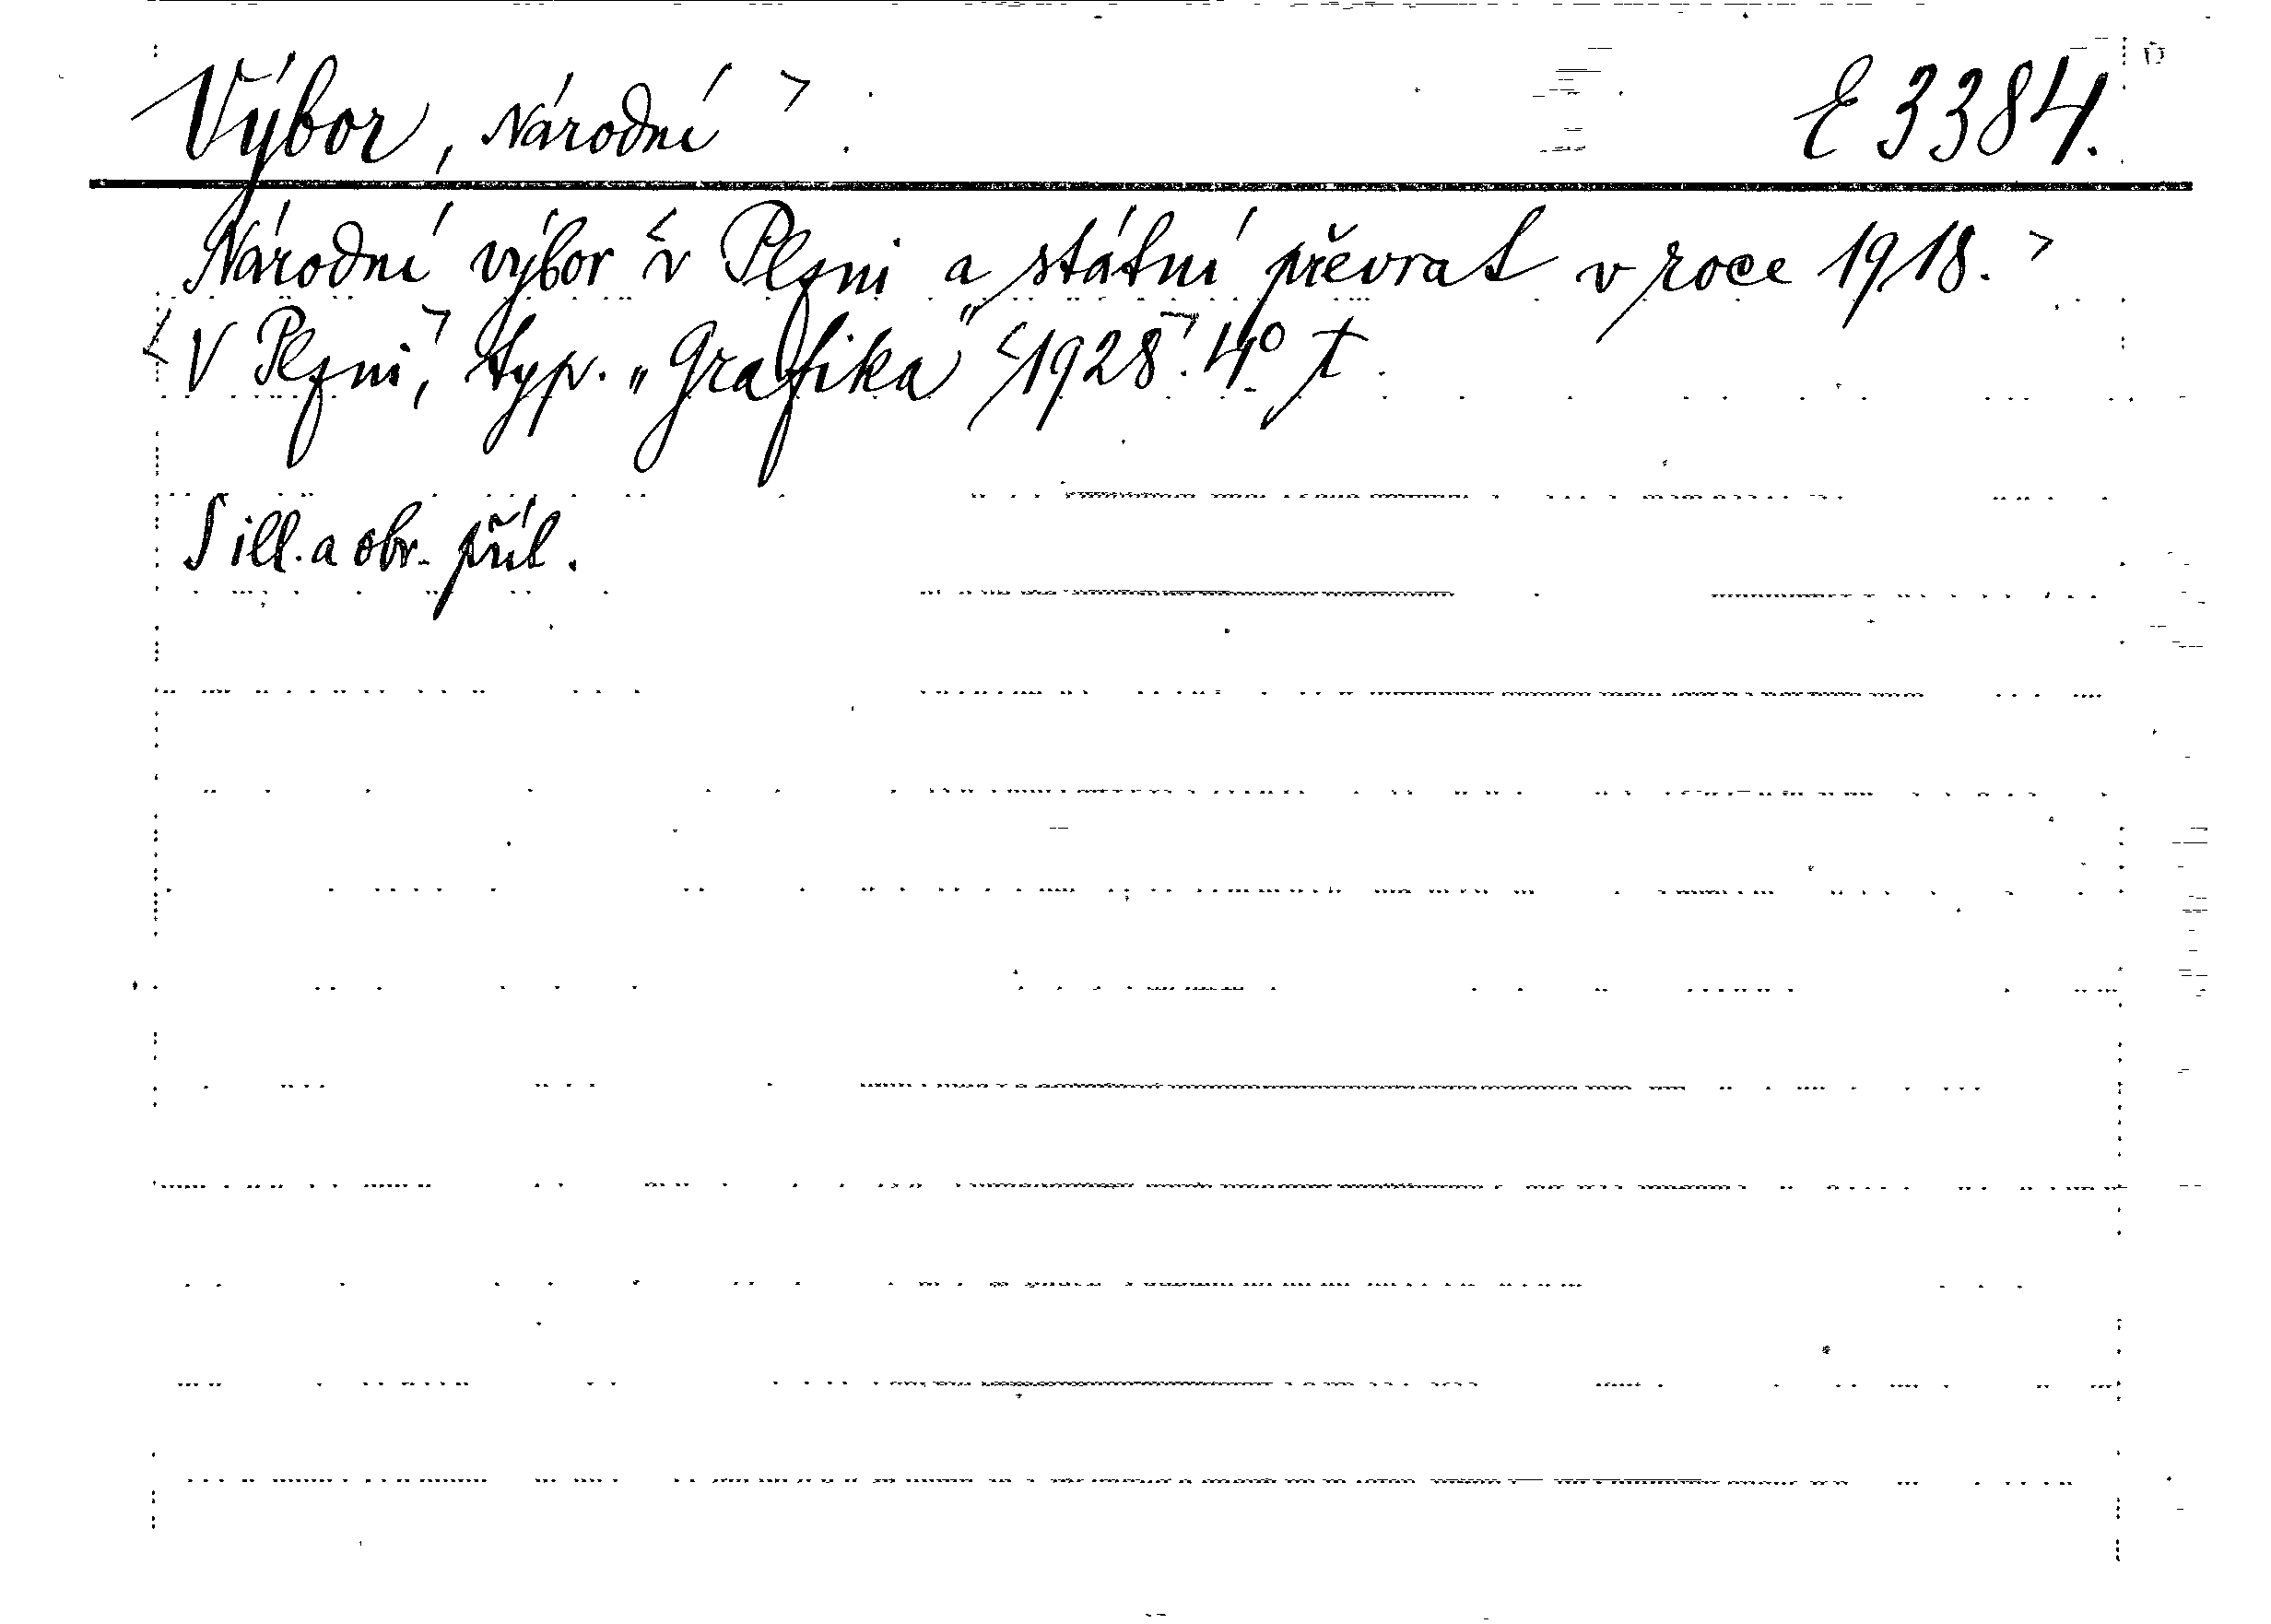 Výbor, Národní > . E 3384.
Národní výbor < v Plzni a státní převrat v roce 1918. >
< V Plzni, > typ. „Grafika" < 1928 >. 4° †.
S ill. a obr. příl.